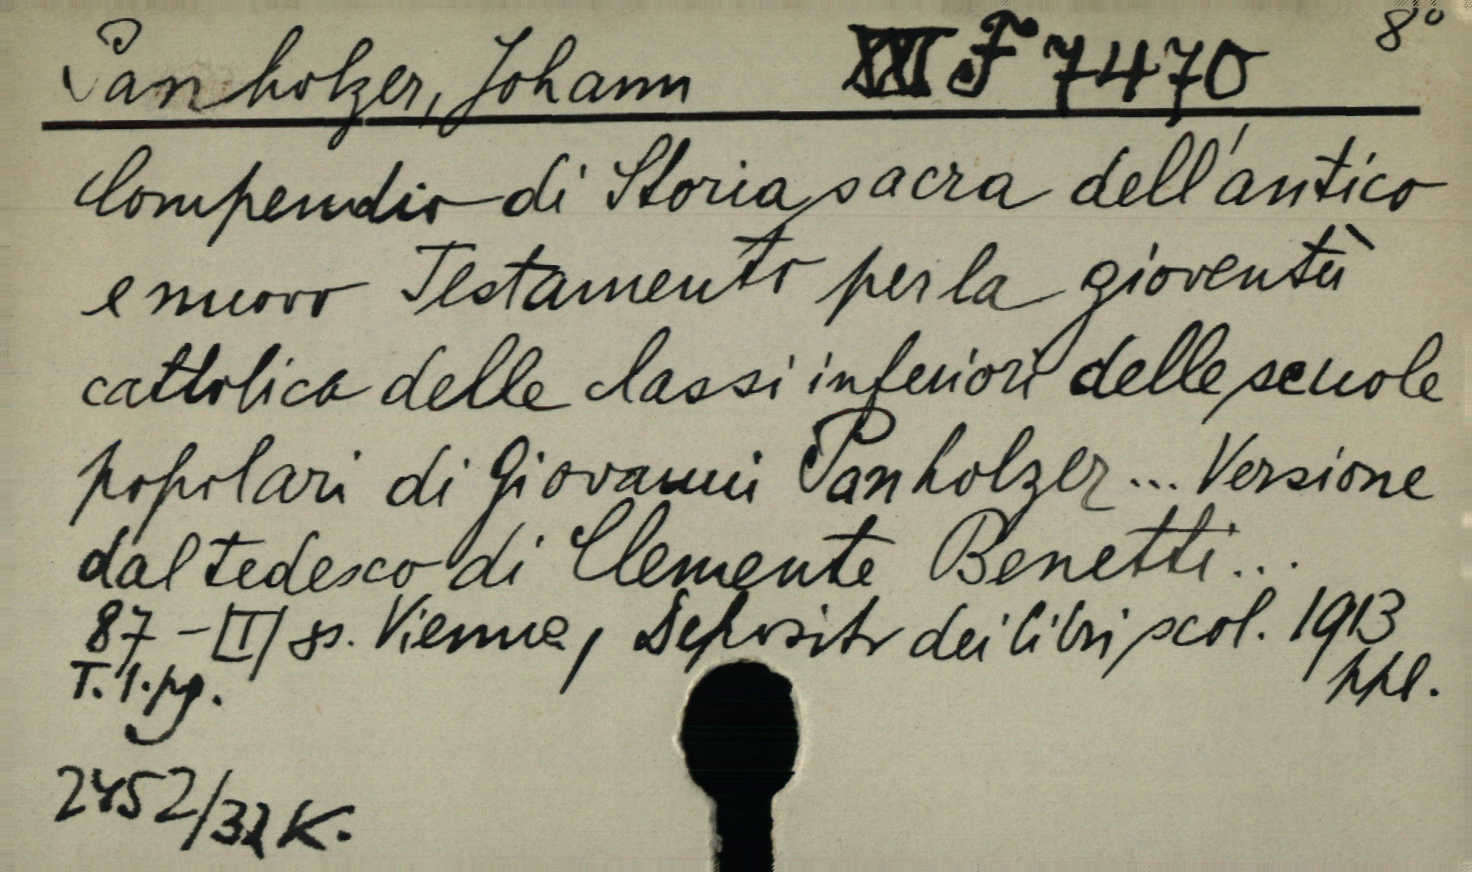 Panholzer, Johann XXI F 7470 8°
Compendio di Storia sacra dell'antico
e nuovo Testamento per la gioventù
cattolica delle classi inferiori delle scuole
popolari di Giovanni Panholzer... Versione
dal tedesco di Clemente Benetti...
87 - [I] ss. Vienna, Deposito dei libri scol. 1913
T. 1. pg. ppl.
2452/32 K.